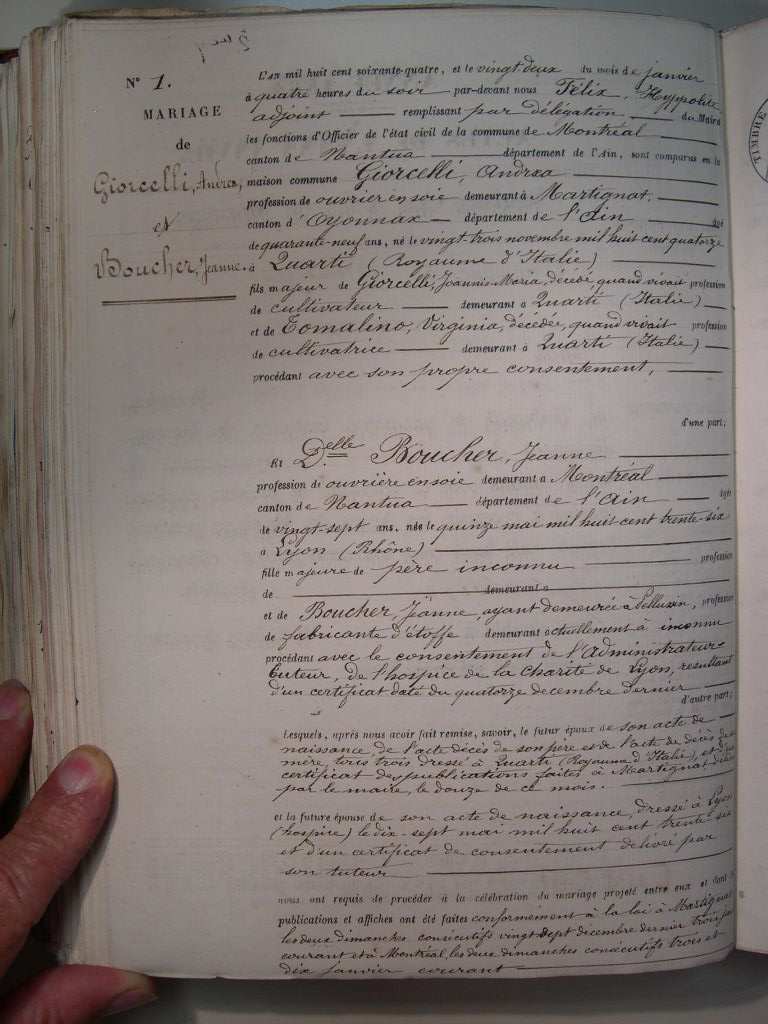 N° 1.
MARIAGE
de
Giorcelli, Andrea,
et
Boucher, Jeanne.
L'AN mil huit cent soixante-quatre, et le vingt deux du mois de janvier
à quatre heures du soir par-devant nous Félix, Hyppolite
adjoint remplissant par délégation du Maire
les fonctions d'Officier de l'état civil de la commune de Montréal
canton de Nantua département de l'Ain, sont comparus en la
maison commune Giorcelli, Andrea
profession de ouvrier en soie demeurant à Martignat,
canton d'Oyonnax département de l'Ain âgé
de quarante-neuf ans, né le vingt-trois novembre mil huit cent quatorze
à Quarti (Royaume d'Italie)
fils majeur de Giorcelli, Joannis-Maria, décédé, quand vivait profession
de cultivateur demeurant à Quarti (Italie)
et de Tomalino, Virginia, décédée, quand vivait profession
de cultivatrice demeurant à Quarti (Italie)
procédant avec son propre consentement,
d'une part;
Et D.elle Boucher, Jeanne
profession de ouvrière en soie demeurant à Montréal
canton de Nantua département de l'Ain âgée
de vingt-sept ans, née le quinze mai mil huit cent trente-six
à Lyon (Rhône)
fille majeure de père inconnu profession
de demeurant à
et de Boucher, Jeanne, ayant demeurée à Pellussin, profession
de fabricante d'étoffe demeurant actuellement à inconnu
procédant avec le consentement de l'Administrateur
tuteur, de l'hospice de la charité de Lyon, resultant
d'un certificat daté du quatorze decembre dernier
d'autre part;
Lesquels, après nous avoir fait remise, savoir, le futur époux de son acte de
naissance de l'acte décès de son père et de l'acte de décès de sa
mère, tous trois dressé à Quarti (Royaume d'Italie), et du
certificat des publications faites à Martignat délivré
par le maire, le douze de ce mois.
et la future épouse de son acte de naissance, dressé à Lyon
(hospice) le dix-sept mai mil huit cent trente-six
et d'un certificat de consentement délivré par
son tuteur
nous ont requis de procéder à la célébration du mariage projeté entre eux et dont les
publications et affiches ont été faites conformement à la loi à Martignat
les deux dimanches consécutifs vingt sept decembre dernier trois janvier
courant et à Montréal, les deux dimanches consécutifs trois et
dix janvier courant
TIMBRE